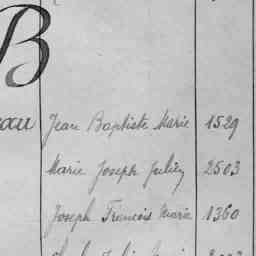 B
eau Jean Baptiste Marie 1529
Marie Joseph Julien 2503
Joseph Francois Marie 1360